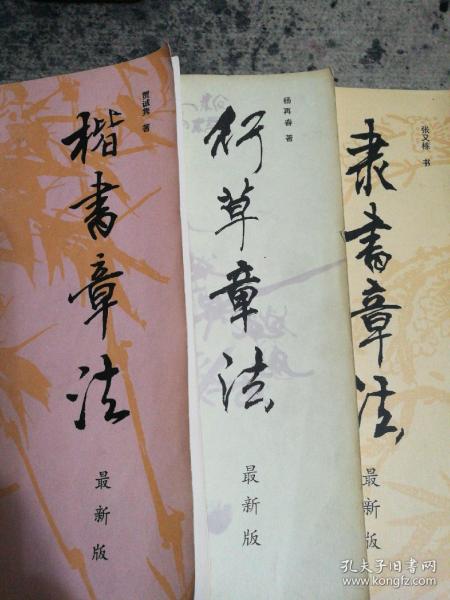 楷书章法
贾诚隽 著
最新版
行草章法
杨再春 著
最新版
隶书章法
张又栋 书
最新版
孔夫子旧书网
www.kongfz.com